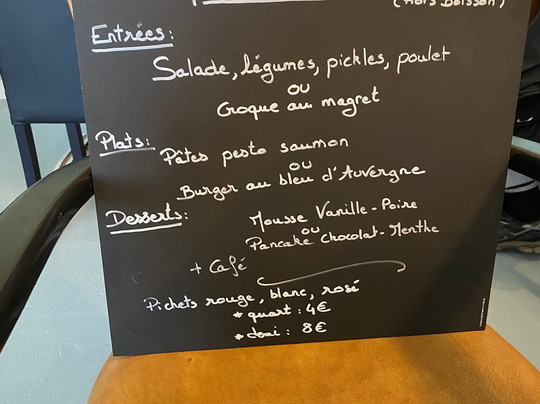 (Hors Boisson)
Entrées:
Salade, légumes, pickles, poulet
ou
Croque au magret
Plats:
Pâtes pesto saumon
ou
Burger au bleu d'Auvergne
Desserts:
Mousse Vanille-Poire
ou
Pancake Chocolat-Menthe
+ Café
Pichets rouge, blanc, rosé
* quart : 4€
* demi : 8€